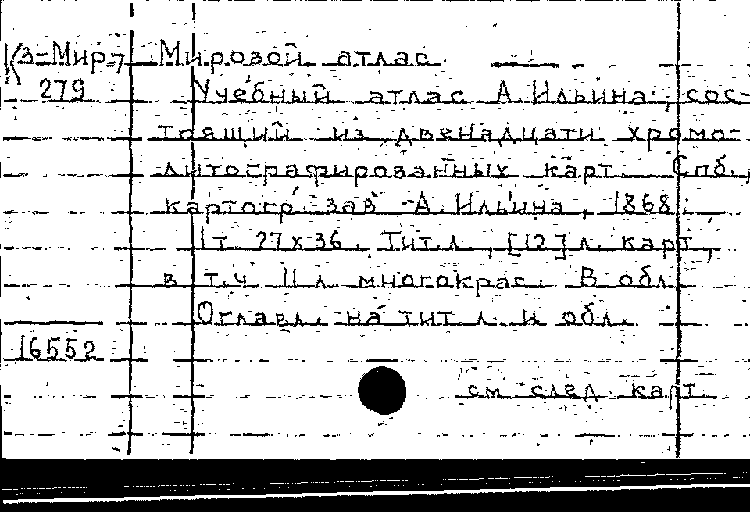 К3-Мир-7 Мировой атлас
279 Учебный атлас А.Ильина, сос-
тоящий из двенадцати хромо-
литографированных карт. Спб.,
картогр зав А.Ильина, 1868.
1т. 27х36. Тит.л., [12] л. карт,
в т.ч 11 л многокрас. В обл.
Оглавл. на тит л. и обл.
16552
см след карт